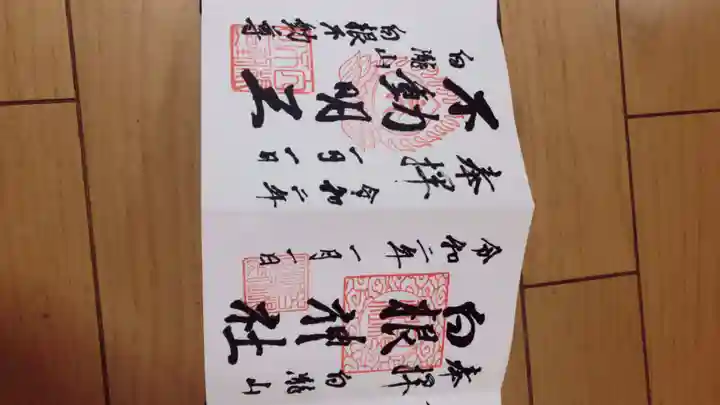 奉拝 白瀧山
白根神社
令和二年一月一日
奉拝
令和二年
一月一日
不動明王
白瀧山
白根不動尊